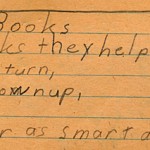 Books
ks they help
turn,
ownup,
r as smart a